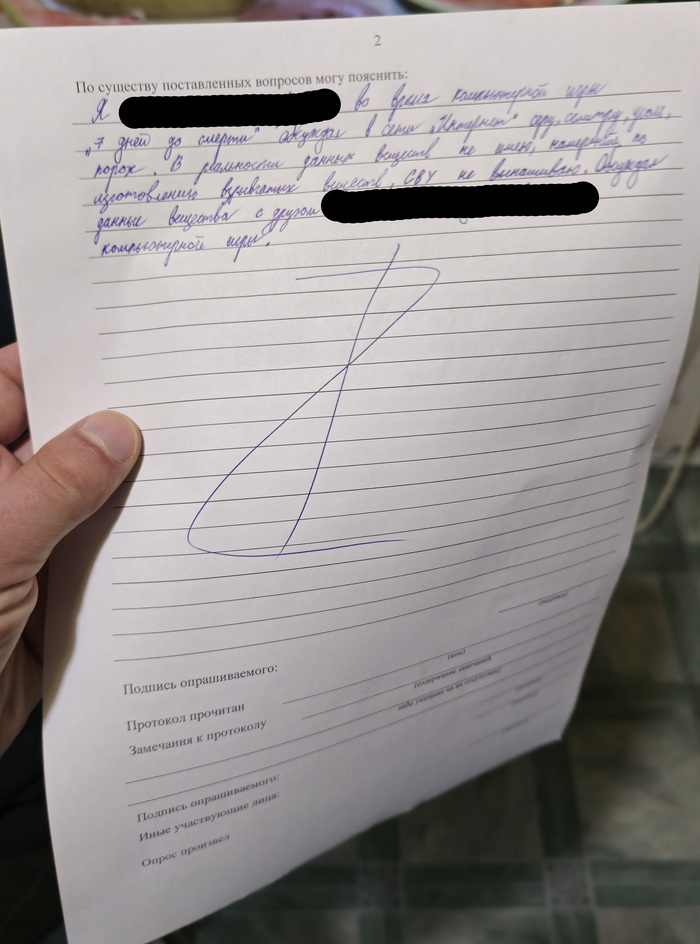 2
По существу поставленных вопросов могу пояснить:
Я во время компьютерной игры
„7 дней до смерти" обсуждал в сети „Интернет" серу, селитру, уголь,
порох. В реальности данных веществ не имею, намерений по
изготовлению взрывчатых веществ, СВУ не вынашиваю. Обсуждал
данные вещества с другом
компьютерной игры.
(подпись)
Подпись опрашиваемого:
(кем)
Протокол прочитан
(содержание замечаний
Замечания к протоколу
либо указание на их отсутствие)
Подпись опрашиваемого:
Иные участвующие лица:
Опрос произвел